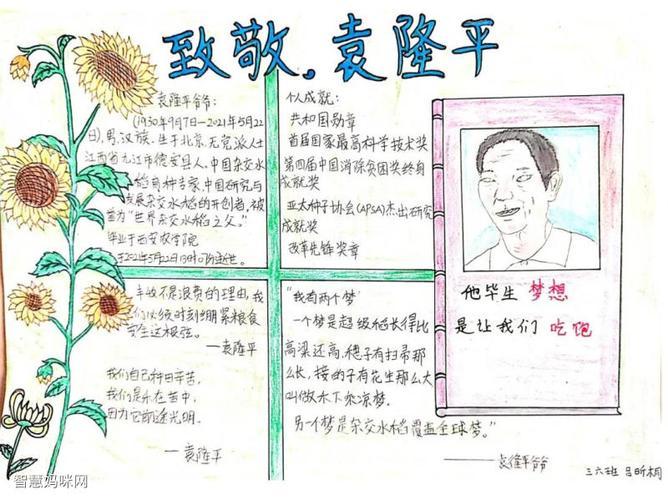 致敬,袁隆平
袁隆平爷爷:
(1930年9月7日-2021年5月22
日),男,汉族,生于北京,无党派人士
江西省九江市德安县人,中国杂交水
稻育种专家,中国研究与
发展杂交水稻的开创者,被
誉为“世界杂交水稻之父。”
毕业于西安农学院
2021年5月22日13时07分逝世。
个人成就:
共和国勋章
首届国家最高科学技术奖
第四届中国消除贫困奖终身
成就奖
亚太种子协会(APSA)杰出研究
成就奖
改革先锋奖章
丰收不是浪费的理由,我
们必须时刻绷紧粮食
安全这根弦。
—袁隆平
我们自己种田辛苦,
我们是乐在苦中,
因为它前途光明。
—袁隆平
“我有两个梦
一个梦是超级稻长得比
高梁还高,穗子有扫帚那
么长,接的子有花生那么大
叫做禾下乘凉梦.
另一个梦是杂交水稻覆盖全球梦。”
——袁隆平爷爷
他毕生 梦想
是让我们 吃饱
三六班 吕昕桐
智慧妈咪网